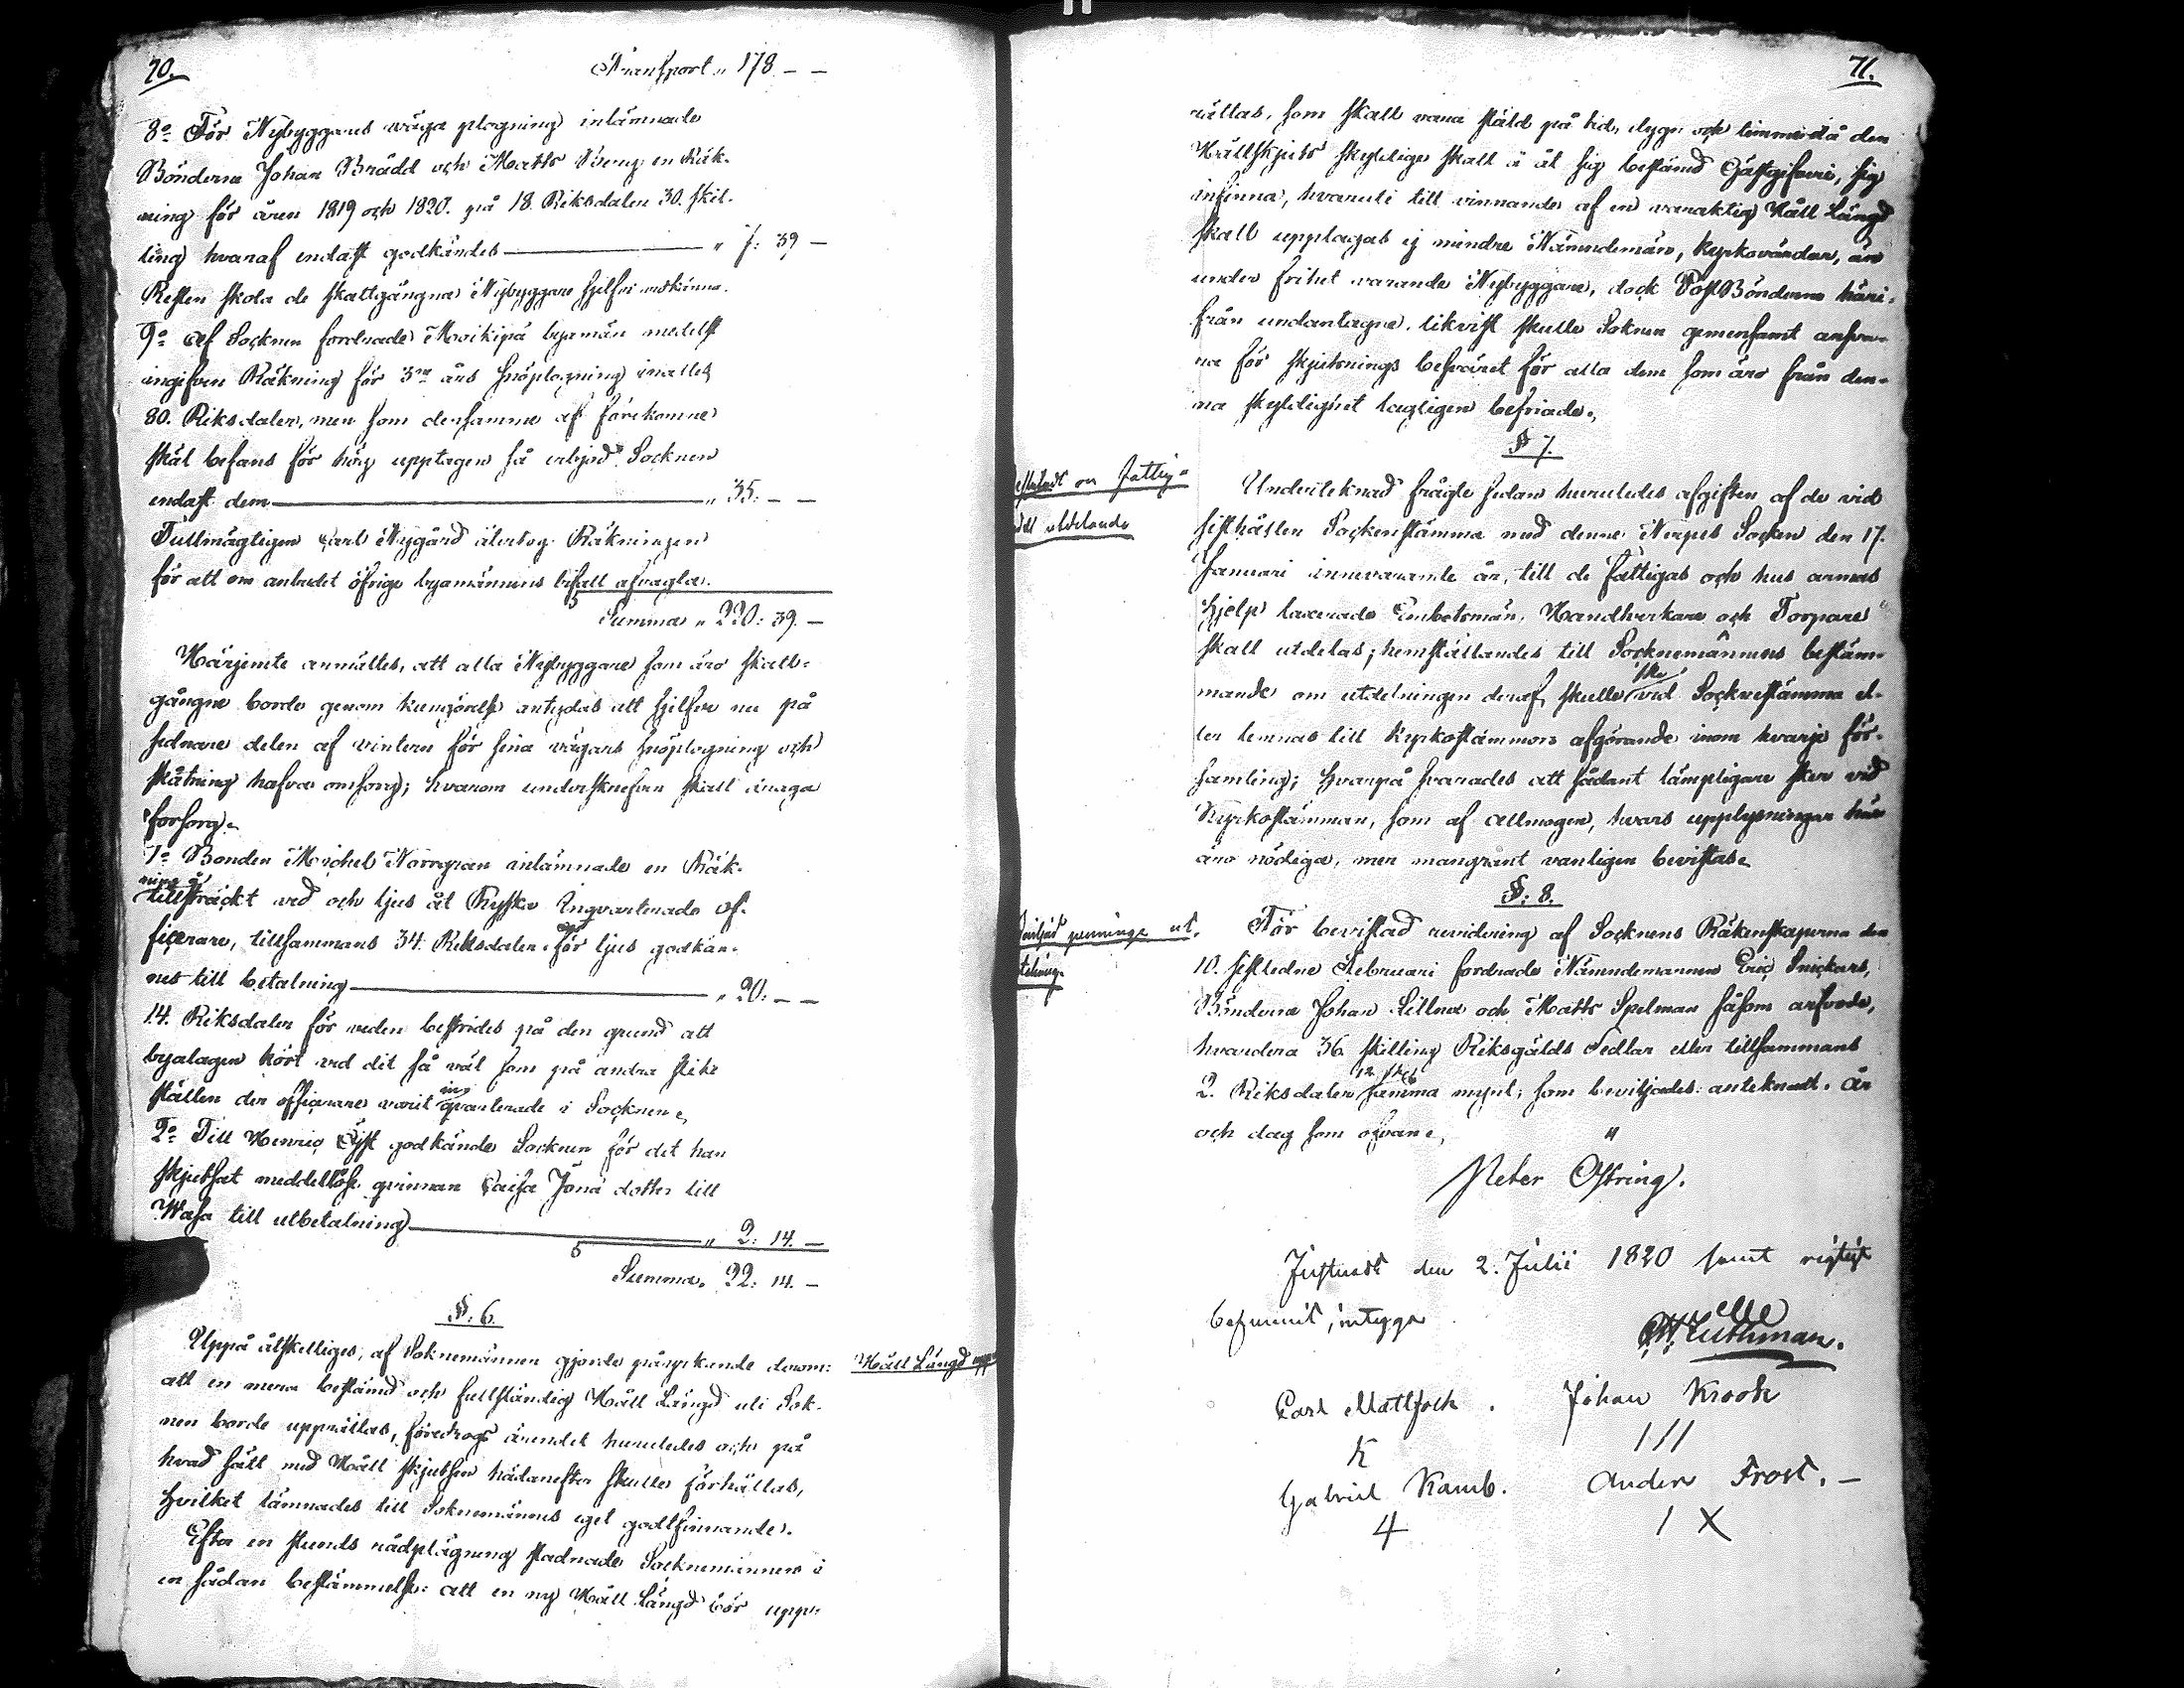 70.
Transport „ 178. – –
8o För Nybyggares väga plogning inlämnade
Bönderna Johan Brädd och Matts Berg en Räk-
ning för åren 1819 och 1820. på 18. Riksdaler 30. skil-
ling hvaraf endast godkändes „ 7: 39 –
Resten skola de skattgångna Nybyggare sjelfve
9o Af Socknen fordrade byamän medelst
ingifven Räkning för 3ne års snöplogning
80. Riksdaler, men som densamma af förekomne
skäl befans för hög upptagen så erbjöd Socknen
endast dem „ 35: – –
Fullmägtigen Carl Nygård återtog Räkningen
för att om anbudet öfrige byamännens bifall afvagta.
Summa „ 220: 39. –
Härjemte anmältes, att alla Nybyggare som äro skatt-
gångne borde genom kungörelse antydas att sjelfve nu på
sednare delen af vintern för sina vägars snöplogning och
skåtning hafva omsorg; hvarom underskrefven skall draga
forsorg.
1o Bonden Michel Norrgran inlämnade en Räk-
ning å
tillsträckt ved och ljus åt Ryska Inqvarterade of-
ficerare, tillsammans 34. Riksdaler för ljus godkän-
nes till betalning „ 20: – –
14. Riksdaler för veden bestrides på den grund att
byalagen kört ved dit så väl som på andra slike
ställen der officerare varit inqvarterade i Socknen.
2o Till Henric godkände Socknen för det han
skjutsat meddellöse qvinnan Caisa Jona dotter till
Wasa till utbetalning „ 2: 14. –
Summa. 22: 14. –
§. 6.
Uppå åtskilliges, af Soknemännen gjorde påyrkande derom:
Håll Längd upp
att en mera bestämd och fullständig Håll Längd uti Sok-
nen borde upprättas, föredrogs ärendet huruledes och på
hvad sätt med Håll skjutsen hädanefter skulle förhållas,
hvilket lämnades till Soknemännens eget godtfinnande.
Efter en stunds rådplägning stadnade Socknemännen i
en sådan bestämmelse: att en ny Håll Längd bör upp-
71.
rättas, som skall vara stäld på tid, dygn och timma då den
Hållskjuts skyldige skall å åt sig bestämd Gästgifveri, sig
infinna, hvaruti till vinnande af en varaktig Håll Längd
skall upptagas ej mindre Nämndemän, Kyrkovärdar, än
under frihet varande Nybyggare, dock PostBönderne häri-
från undantagne. likvist skulle Soknen gemensamt ansva-
ra för skjutsnings besväret för alla dem som äro från den-
na skyldighet lagligen befriade.
§ 7.
Undertecknad frågte sedan huruledes afgiften af de vid
sisthållen Sockenstämma med denne Nerpes Socken den 17.
Januari innevarande år, till de fattigas och hus armas
hjelp taxerade Embetsmän, Handtverkare och Torpare
skall utdelas; hemställandes till Socknemännens bestäm-
mande om utdelningen deraf skulle ske vid Socknestämma el-
ler lemnas till Kyrkostämmors afgörande inom hvarje för-
samling; hvarpå svarades att sådant lämpligare sker vid
Kyrkostämman, som af allmogen, hvars upplysningar här
äro nödiga, mer mangrant vanligen bevistas.
§: 8.
penninge ut.
För bevistad revidering af Socknens Räkenskaperna den
10. sistledne Februari fordrade Nämndemannen Eric Snickars,
Bönderna Johan Lillna och Matts Spelman såsom arfvode,
hvardera 36. skilling Riksgälds Sedlar eller tillsammans
2. Riksdaler 12 sk samma mynt; som beviljades. anteknadt. År
och dag som ofvan.
Peter Östring.
Justeradt den 2. Julii 1820 samt rigtigt
befunnit, intyga
Luthman.
Carl Mattfolk . Johan Krook
K 111
Gabriel Kamb. Anders Frost. –
4 1 X